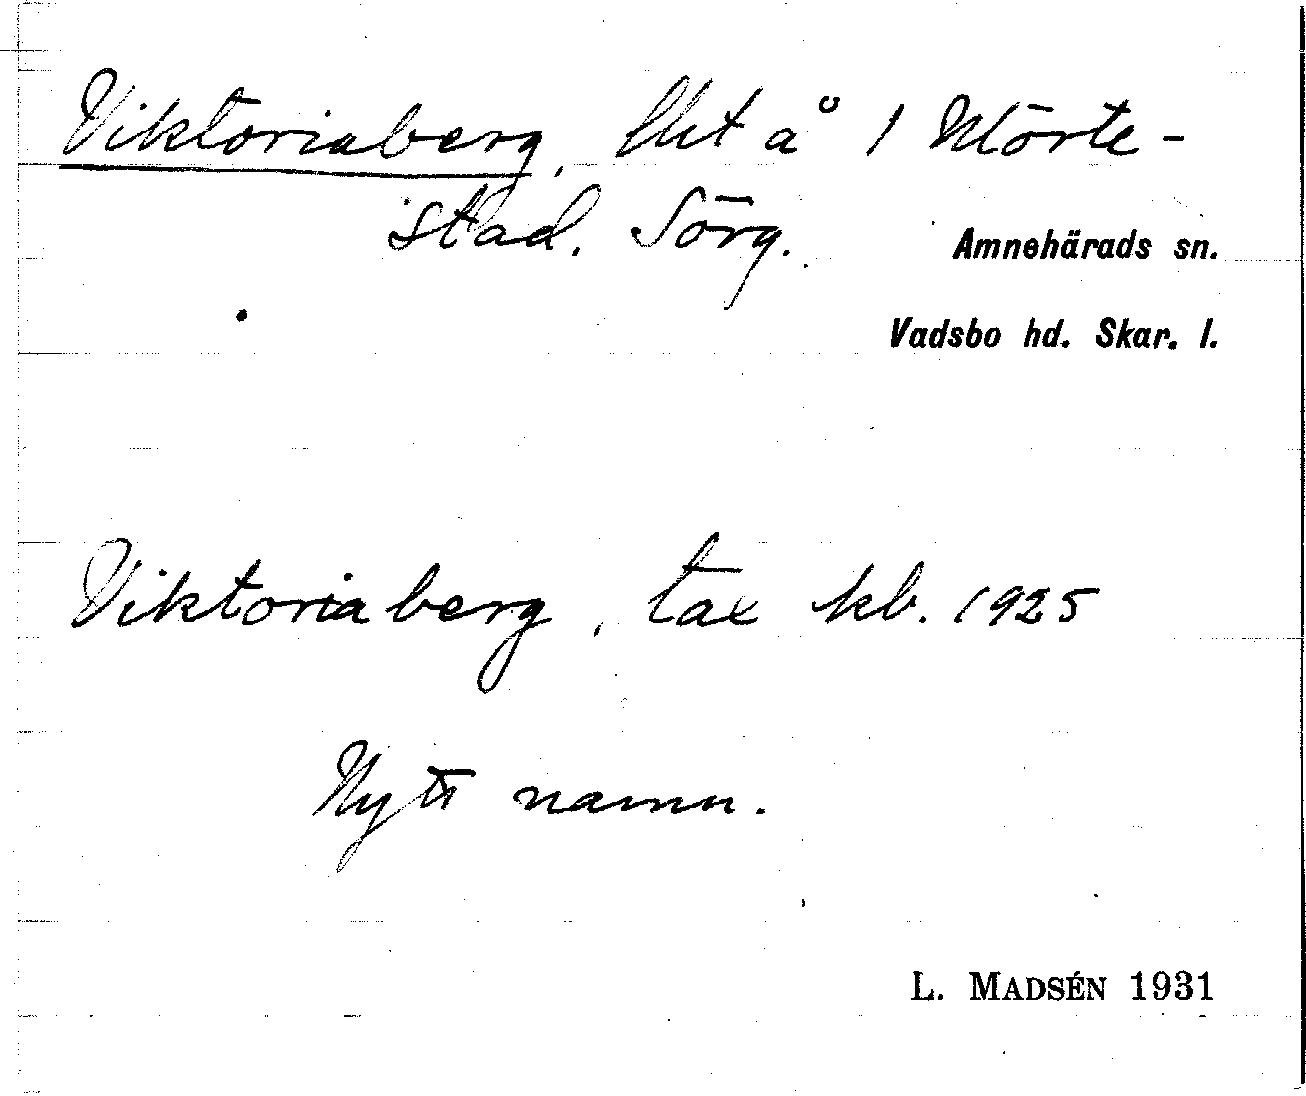 Viktoriaberg, lht å 1 Mörte-
stad. Sörg.
Amnehärads sn.
Vadsbo hd. Skar. l.
Viktoriaberg, tax kb. 1925
Nytt namn.
L. MADSÉN 1931